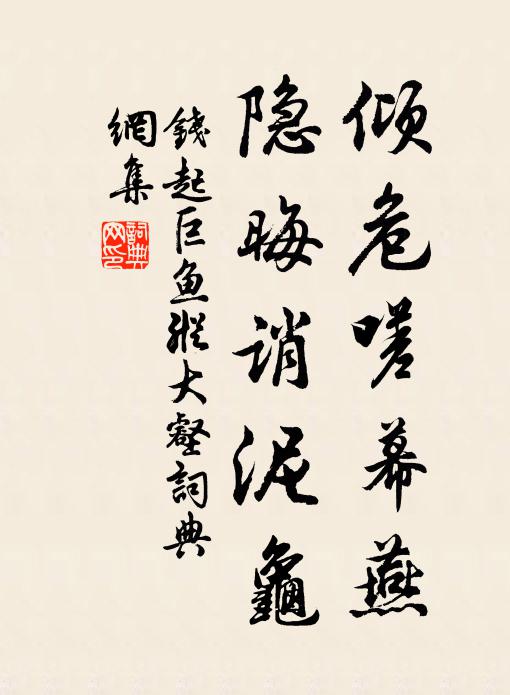 倾危嗟幕燕
隐晦诮泥龜
錢起巨鱼纵大壑詞典
網集
詞典
网印